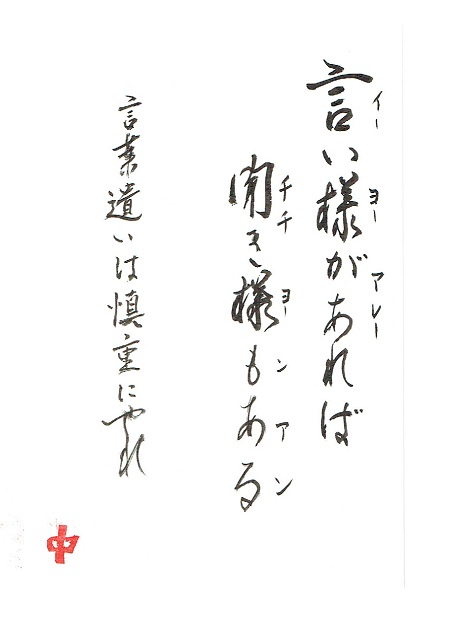 イーヨーアレー
言い様があれば
チチヨーンアン
聞き様もある
言葉遣いは慎重にやれ
中